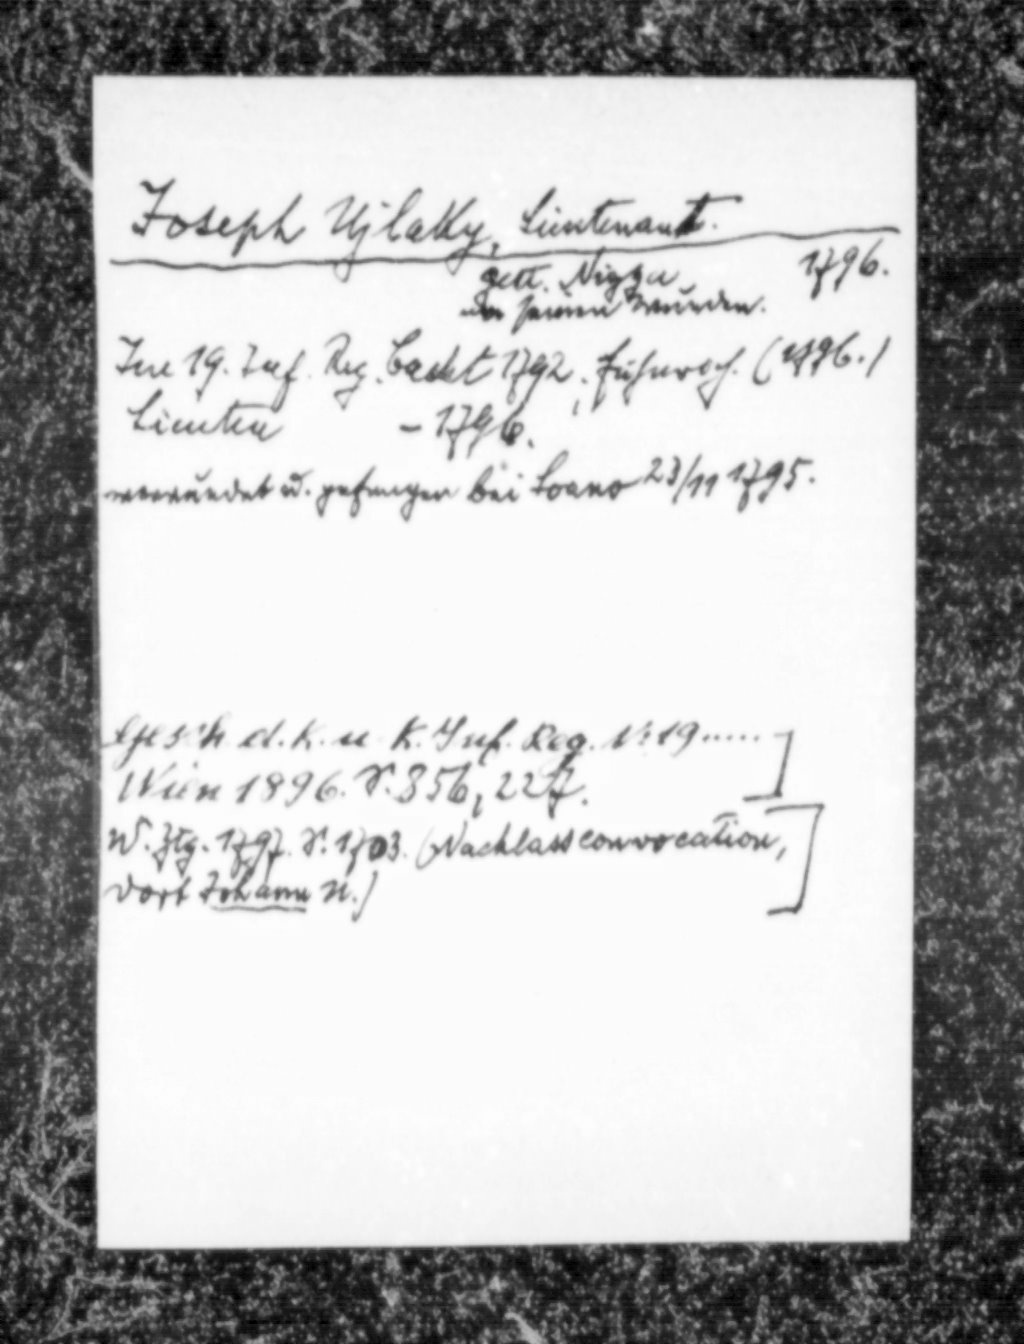 Joseph Ujlaky, Lieutenant.
gest. Nizza 1796.
an seinen Wunden.
Im 19. Inf. Reg. Cadet 1792, Fähnrich. (1796.)
Lieuten - 1796.
verwundet u. gefangen bei Loano 23/11 1795.
Gesch. d. K. u. K. Inf. Reg. Nr. 19.....
Wien 1896. S. 856, 227.
W. Ztg. 1797. S. 1703. (Nachlassconvocation,
dort Johann U.)